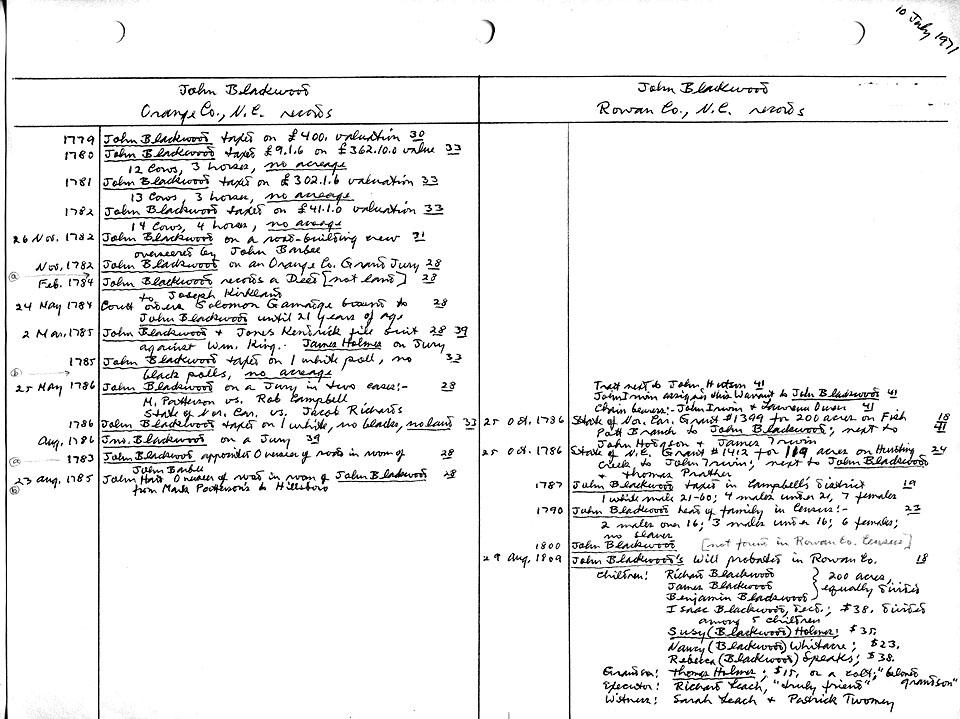 10 July 1971
John Blackwood
Orange Co., N.C. records
1779 John Blackwood taxed on £400. valuation 30
1780 John Blackwood taxed £9.1.6 on £362.10.0 value 33
12 cows, 3 horses, no acreage
1781 John Blackwood taxed on £302.1.6 valuation 33
13 cows, 3 horses, no acreage
1782 John Blackwood taxed on £41.1.0 valuation 33
14 cows, 4 horses, no acreage
26 Nov. 1782 John Blackwood on a road-building crew 31
overseered by John Barbee
Nov, 1782 John Blackwood on an Orange Co. Grand Jury 28
a
Feb. 1784 John Blackwood records a Deed [not land] 28
to Joseph Kirkland
24 May 1784 Court orders Solomon Gamadge bound to 28
John Blackwood until 21 years of age
2 Mar, 1785 John Blackwood + Jones Kendrick file suit 28 39
against Wm. King. James Holmes on Jury
1785 John Blackwood taxed on 1 white poll, no 33
black polls, no acreage
b
25 May 1786 John Blackwood on a Jury in two cases:- 28
M. Patterson vs. Rob Campbell
State of Nor. Car. vs. Jacob Richards
1786 John Blackwood taxed on 1 white, no blacks, no land 33
Aug, 1786 Jno. Blackwood on a Jury 39
a 1783 John Blackwood appointed Overseer of road in room of 28
John Barbee
23 Aug, 1785 John Hart Overseer of road in room of John Blackwood 28
b from Mark Patterson's to Hillsboro
John Blackwood
Rowan Co., N.C. records
Tract next to John Hudson 41
John Irwin assigns this Warrant to John Blackwood 41
Chain bearers:- John Irwin + Lawrence Owen 41
25 Oct, 1786 State of Nor. Car. Grant #1399 for 200 acres on Fish 18
Pott Branch to John Blackwood; next to 41
John Hodgson + James Irwin
25 Oct, 1786 State of N.C. Grant #1412 for 119 acres on Hunting 24
Creek to John Irwin; next to John Blackwood
+ Thomas Prather
1787 John Blackwood taxed in Campbell's District 19
1 white male 21-60; 4 males under 21, 7 females
1790 John Blackwood head of family in Census:- 23
2 males over 16; 3 males under 16; 6 females;
no slaves
1800 John Blackwood [not found in Rowan Co. Census]
29 Aug, 1809 John Blackwood's Will probated in Rowan Co. 18
Children: Richard Blackwood } 200 acres,
James Blackwood } equally divided
Benjamin Blackwood
Isaac Blackwood, decd.; $38. divided
among 5 children
Susy (Blackwood) Holmes; $35.
Nancy (Blackwood) Whitacre; $23.
Rebecca (Blackwood) Speaks; $38.
Grandson: Thomas Holmes; $15, or a colt; "beloved grandson"
Executor: Richard Leach, "truly friend"
Witness: Sarah Leach + Patrick Twomey